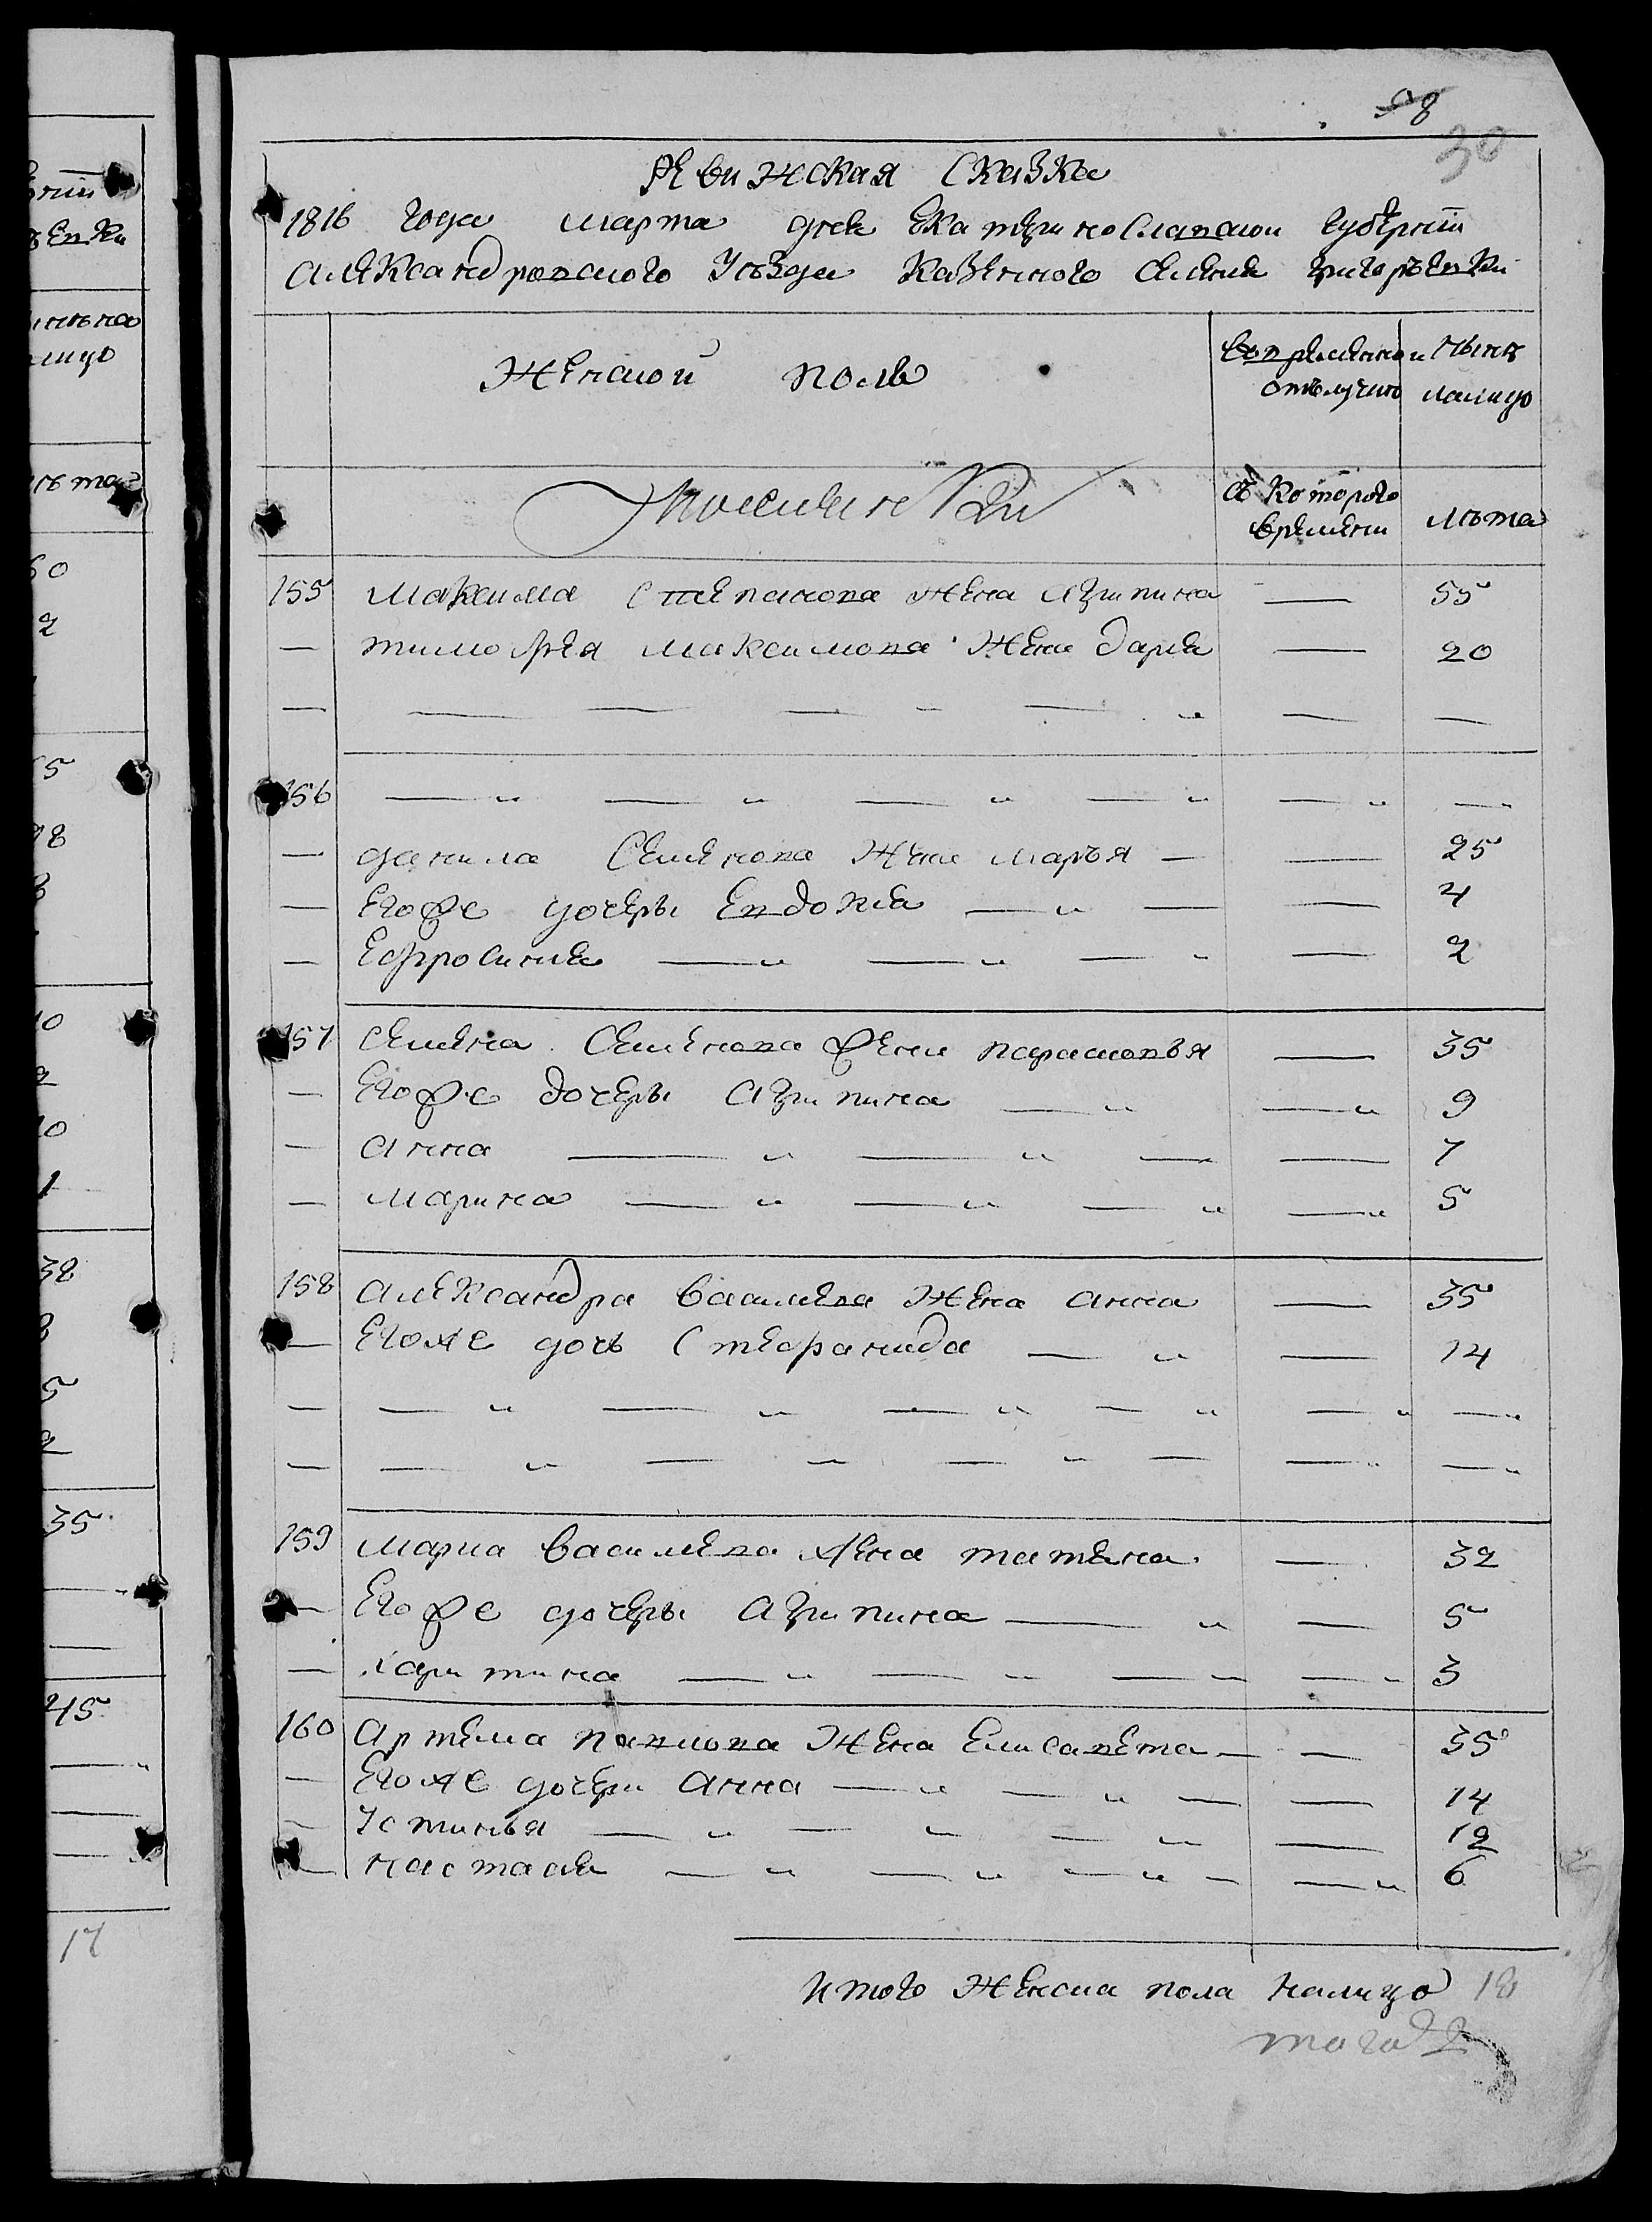 98
30
Ревижская Сказка
1816 года марта дня Екатеринославской Губернии
Александровского Уезда Казенного Селения Григорьевки
Женской полъ
Во временной отълучке
Ныне на лицо
Съ которого времени
лета
155 Максима Степанова жена Агрипина — 55
— тимофея максимова жена дарья — 20
— — — — — — —
156 — — — — — —
— данила Семенова жена марья — — 25
— Егоже дочеры Евдокия — — 4
— Ефросиния — — — 2
157 Семена Семенова жена парасковья — 35
— Егоже дочеры Агрипина — — 9
— Анна — — — 7
— марина — — — 5
158 Александра васильева жена анна — 35
— Егоже дочь Стефанида — — 14
— — — — — — —
— — — — — — —
159 марка васильева жена татьяна — 32
— Егоже дочеры Агрипина — — 5
— харитина — — — 3
160 Артема павлова жена Елисавета — — 35
— Егоже дочери Анна — — — 14
— Устинья — — — 12
— настасия — — — 6
Итого женска пола налицо 18